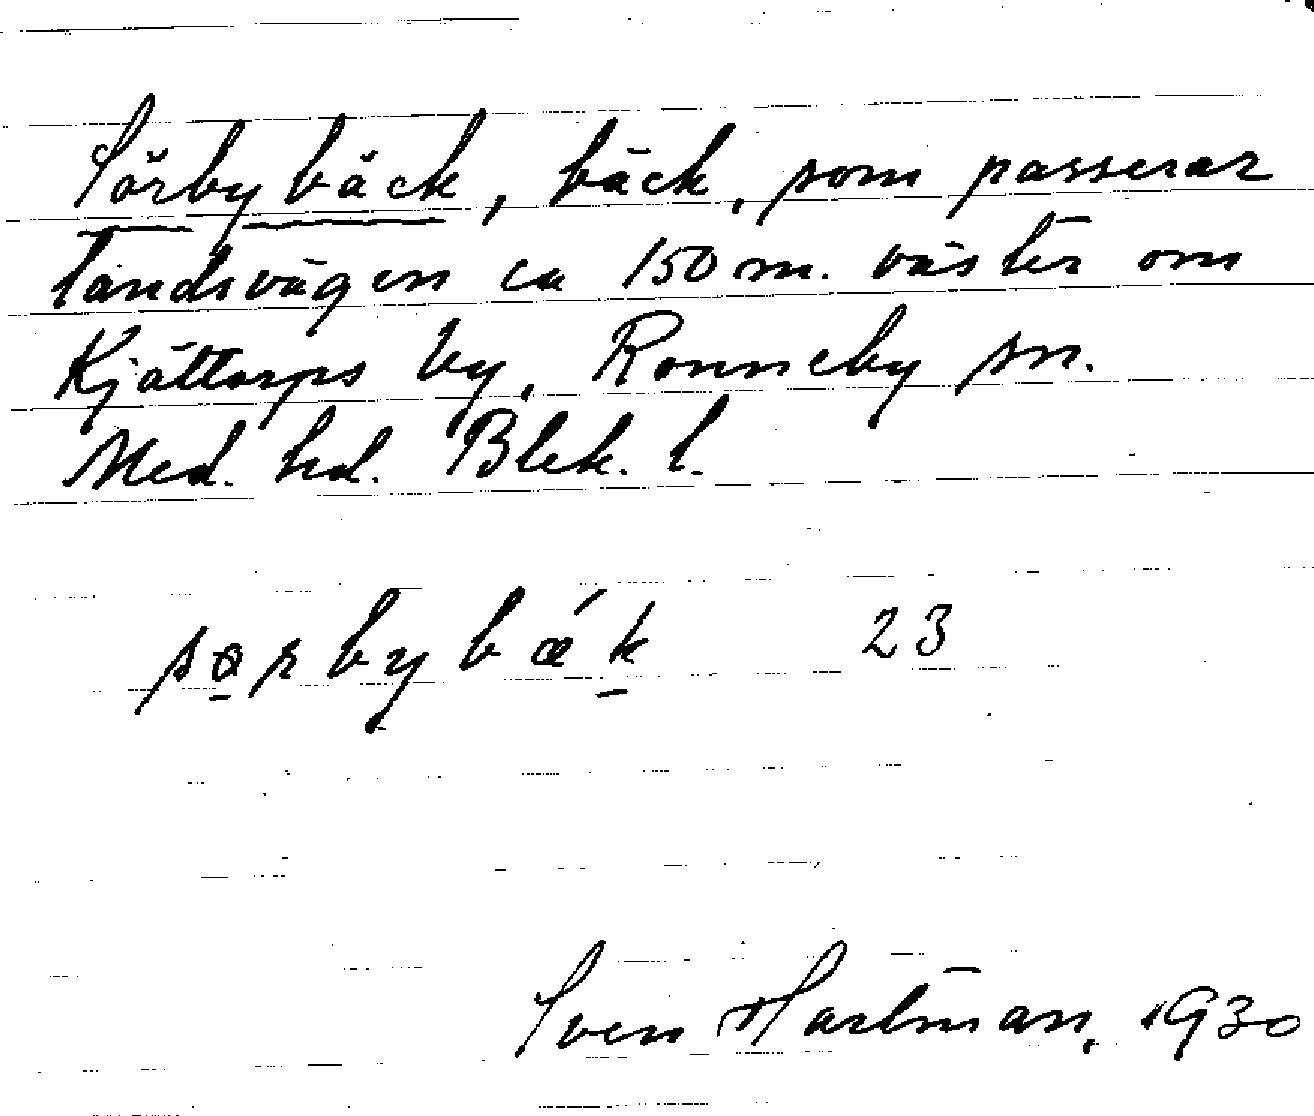 Sörby bäck, bäck, som passerar
landsvägen ca 150 m. väster om
Kjättorps by, Ronneby sn.
Med. hd. Blek. l.
sørbybǽk 23
Sven Hartman, 1930